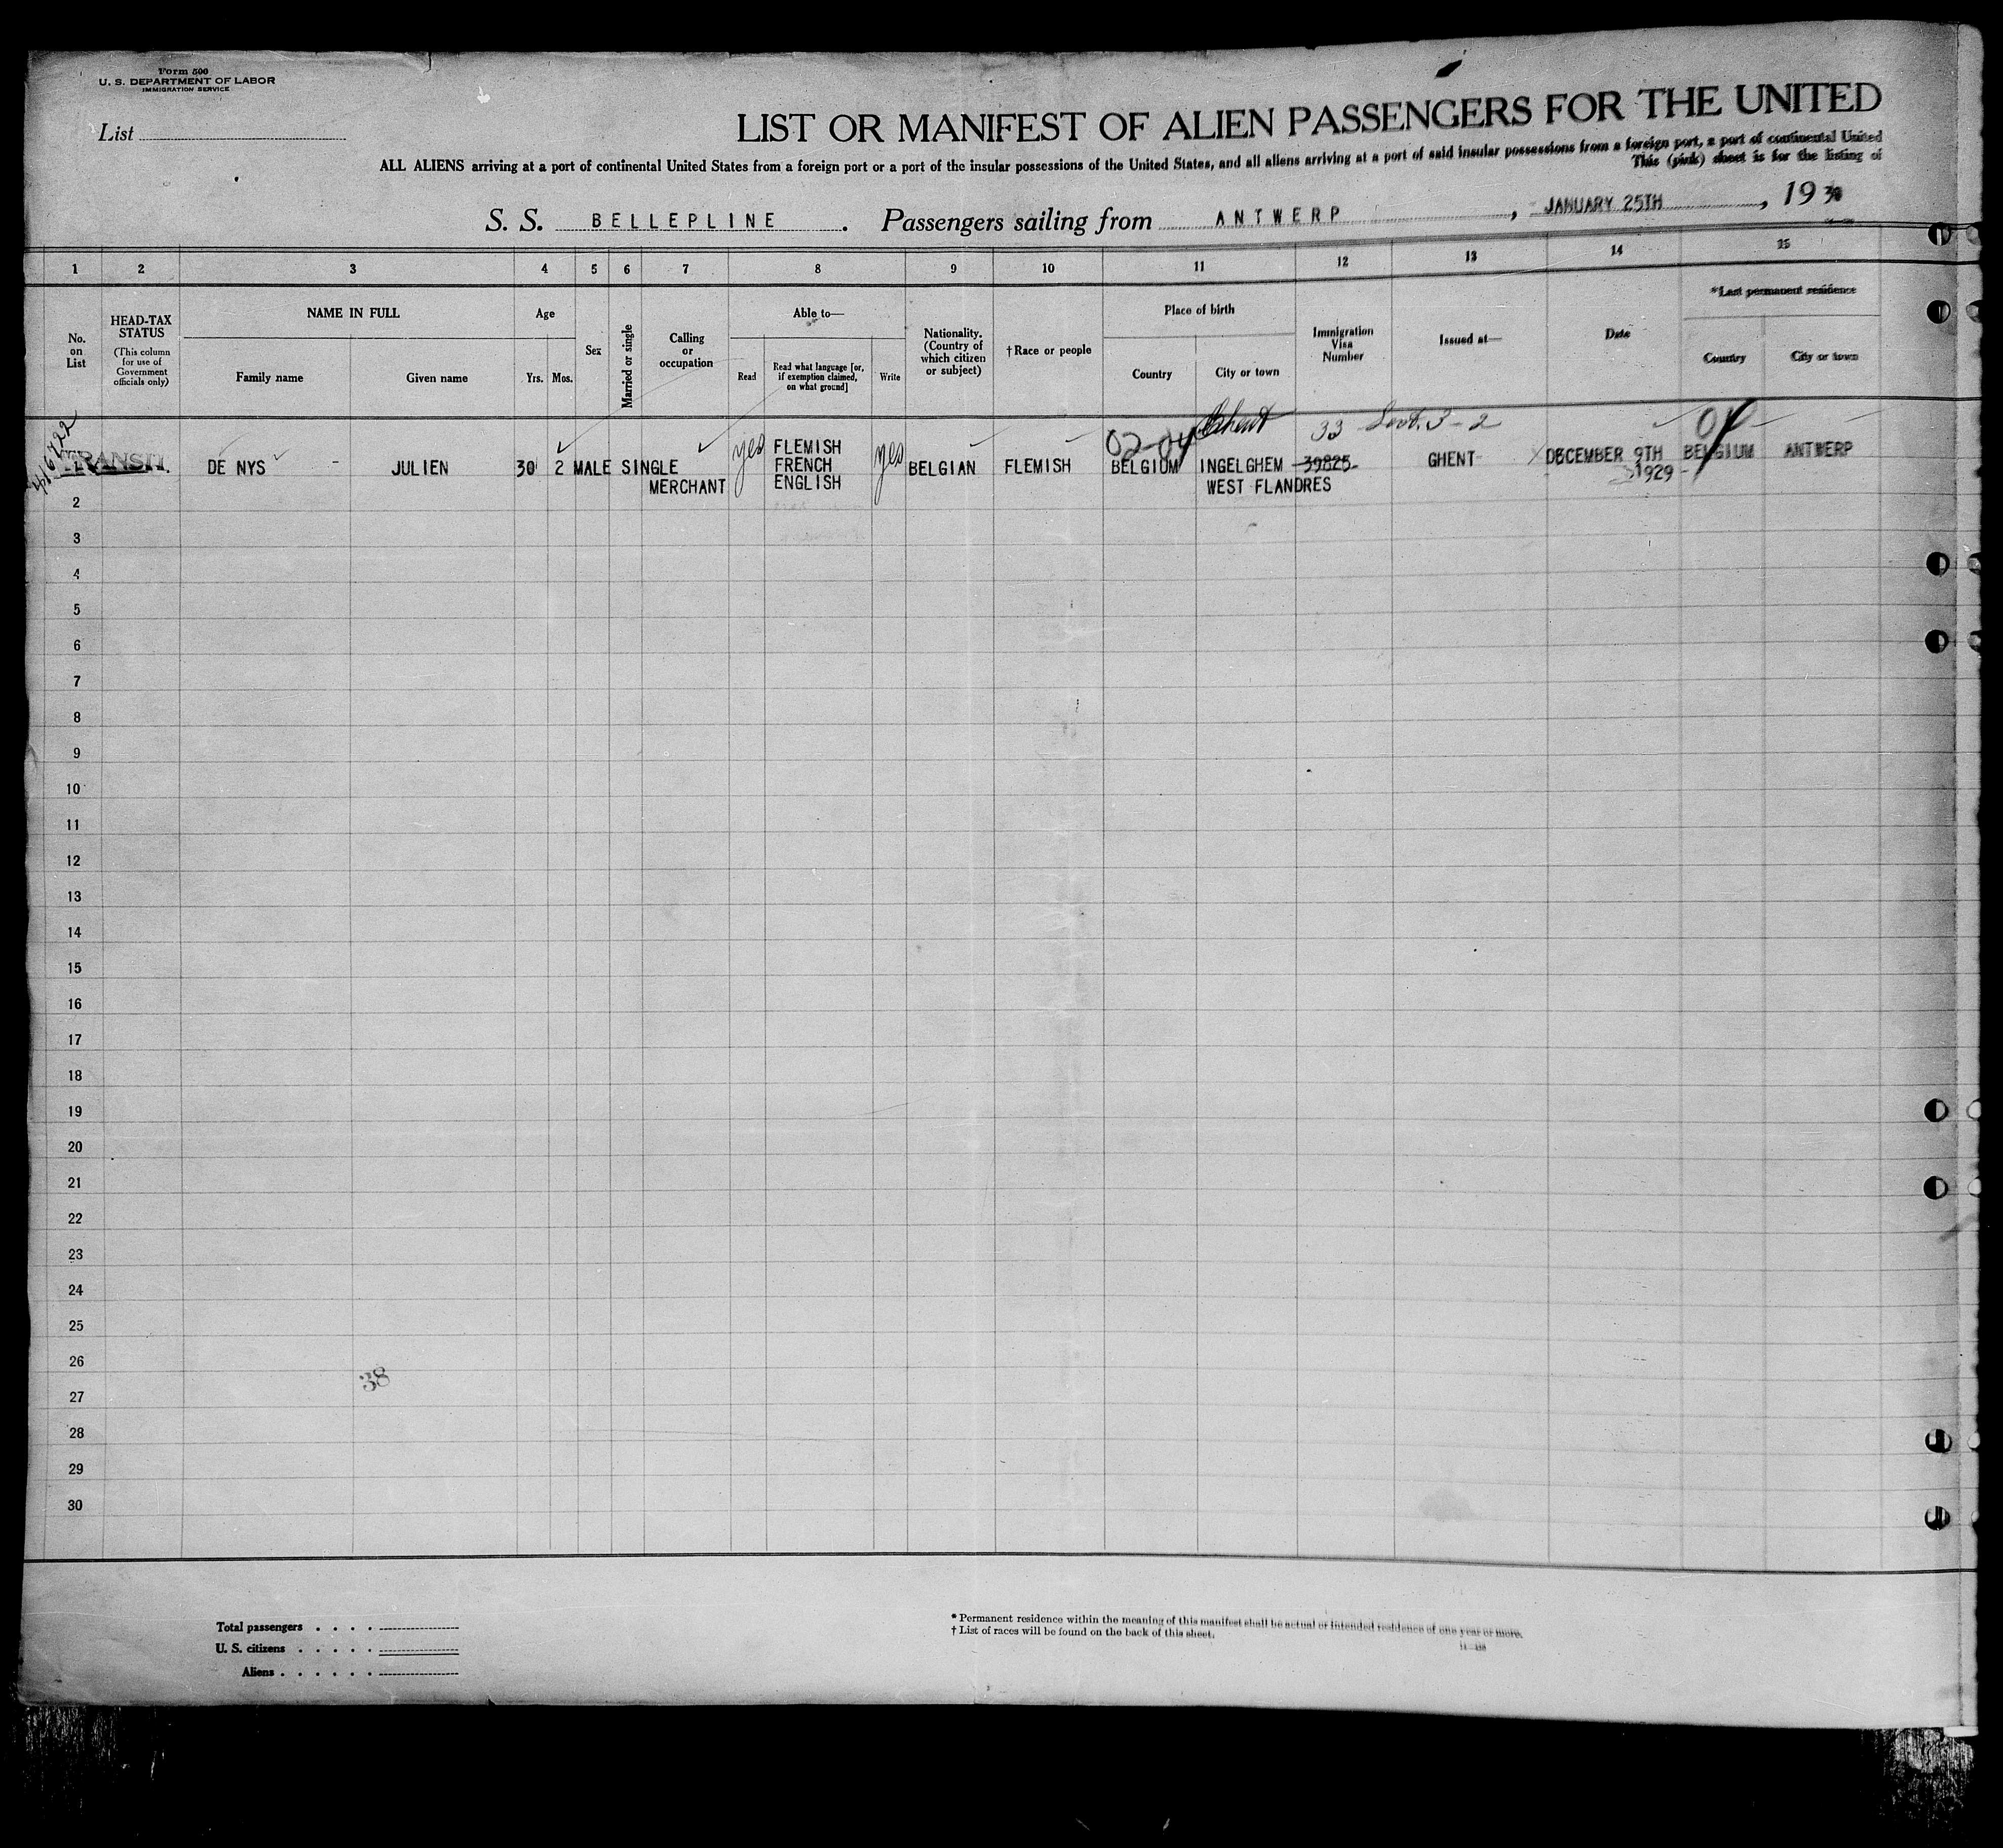 Form 500
U. S. DEPARTMENT OF LABOR
IMMIGRATION SERVICE
List
LIST OR MANIFEST OF ALIEN PASSENGERS FOR THE UNITED
ALL ALIENS arriving at a port of continental United States from a foreign port or a port of the insular possessions of the United States, and all aliens arriving at a port of said insular possessions from a foreign port, a port of continental United
This (pink) sheet is for the listing of
S. S. BELLEPLINE. Passengers sailing from ANTWERP, JANUARY 25TH, 1930
1 2 3 4 5 6 7 8 9 10 11 12 13 14 15
No. on List
HEAD-TAX STATUS
(This column for use of Government officials only)
NAME IN FULL
Family name
Given name
Age
Yrs. Mos.
Sex
Married or single
Calling or occupation
Able to—
Read
Read what language [or, if exemption claimed, on what ground]
Write
Nationality. (Country of which citizen or subject)
†Race or people
Place of birth
Country
City or town
Immigration Visa Number
Issued at—
Date
*Last permanent residence
Country
City or town
416722
02-04 Ghent 33 Sect. 3-2
TRANSIT. DE NYS - JULIEN 30 2 MALE SINGLE MERCHANT yes FLEMISH FRENCH ENGLISH yes BELGIAN FLEMISH BELGIUM INGELGHEM WEST FLANDRES 39825 GHENT DECEMBER 9TH 1929 BELGIUM ANTWERP
2
3
4
5
6
7
8
9
10
11
12
13
14
15
16
17
18
19
20
21
22
23
24
25
26
38
27
28
29
30
Total passengers
U. S. citizens
Aliens
* Permanent residence within the meaning of this manifest shall be actual or intended residence of one year or more.
† List of races will be found on the back of this sheet.